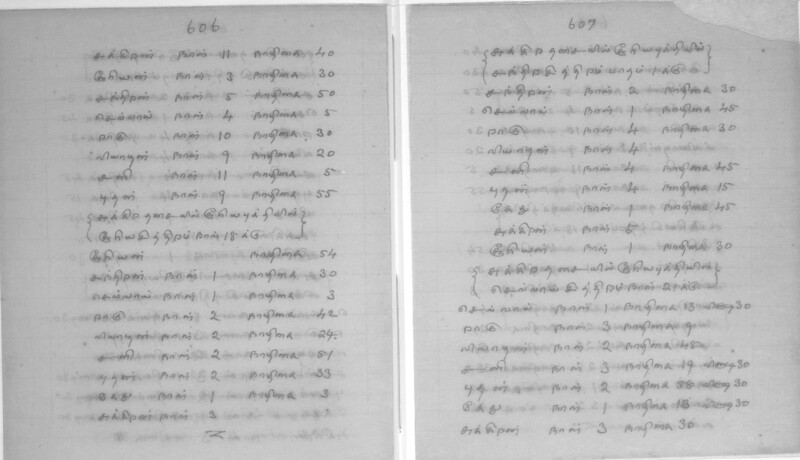 606
சுக்கிரன் நாள் 11 நாழிகை 40
சூரியன் நாள் 3 நாழிகை 30
சந்திரன் நாள் 5 நாழிகை 50
செவ்வாய் நாள் 4 நாழிகை 5
ராகு நாள் 10 நாழிகை 30
வியாழன் நாள் 9 நாழிகை 20
சனி நாள் 11 நாழிகை 5
புதன் நாள் 9 நாழிகை 55
சுக்கிர தசையில் சூரியபுத்தியில்
சூரியசித்திரம் நாள் 18க்கு
சூரியன் நாழிகை 54
சந்திரன் நாள் 1 நாழிகை 30
செவ்வாய் நாள் 1 நாழிகை 3
ராகு நாள் 2 நாழிகை 42
வியாழன் நாள் 2 நாழிகை 24
சனி நாள் 2 நாழிகை 51
புதன் நாள் 2 நாழிகை 33
கேது நாள் 1 நாழிகை 3
சுக்கிரன் நாள் 3
607
சுக்கிர தசையில் சூரியபுத்தியில்
சந்திரசித்திரம் மாதம் 1க்கு
சந்திரன் நாள் 2 நாழிகை 30
செவ்வாய் நாள் 1 நாழிகை 45
ராகு நாள் 4 நாழிகை 30
வியாழன் நாள் 4
சனி நாள் 4 நாழிகை 45
புதன் நாள் 4 நாழிகை 15
கேது நாள் 1 நாழிகை 45
சுக்கிரன் நாள் 5
சூரியன் நாள் 1 நாழிகை 30
சுக்கிரதசையில் சூரியபுத்தியில்
செவ்வாய்சித்திரம் நாள் 21க்கு
செவ்வாய் நாள் 1 நாழிகை 13 வினாழி 30
ராகு நாள் 3 நாழிகை 9
வியாழன் நாள் 2 நாழிகை 48
சனி நாள் 3 நாழிகை 19 வினாழி 30
புதன் நாள் 2 நாழிகை 58 வினாழி 30
கேது நாள் 1 நாழிகை 13 வினாழி 30
சுக்கிரன் நாள் 3 நாழிகை 30